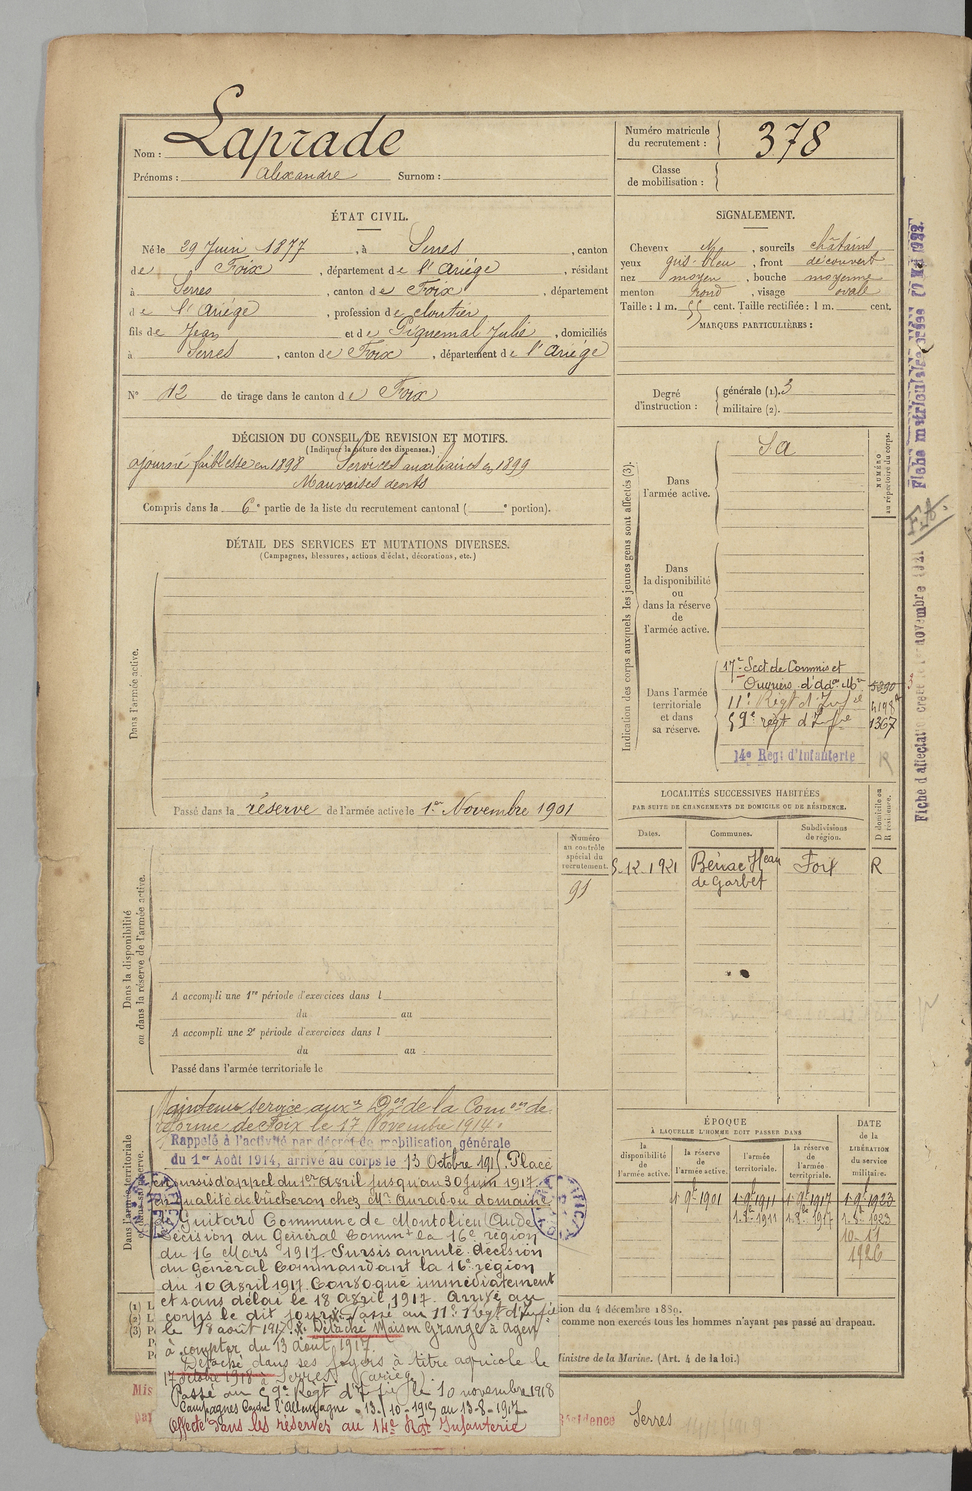 Nom : Laprade
Prénoms : Alexandre Surnom :
Numéro matricule
du recrutement : 378
Classe
de mobilisation :
ÉTAT CIVIL.
Né le 29 Juin 1877, à Serres, canton
de Foix, département de l'Ariège, résidant
à Serres, canton de Foix, département
de l'Ariège, profession de cloutier
fils de Jean et de Piquemal Julie, domiciliés
à Serres, canton de Foix, département de l'Ariège
N° 12 de tirage dans le canton de Foix
SIGNALEMENT.
Cheveux , sourcils châtains
yeux gris-bleu, front découvert
nez moyen, bouche moyenne
menton rond, visage ovale
Taille : 1 m. 55 cent. Taille rectifiée : 1 m. cent.
MARQUES PARTICULIÈRES :
Degré
d'instruction :
générale (1). 3
militaire (2).
DÉCISION DU CONSEIL DE REVISION ET MOTIFS.
(Indiquer la nature des dispenses.)
ajourné faiblesse en 1898 Services auxiliaires en 1899
Mauvaises dents
Compris dans la 6e partie de la liste du recrutement cantonal ( e portion).
DÉTAIL DES SERVICES ET MUTATIONS DIVERSES.
(Campagnes, blessures, actions d'éclat, décorations, etc.)
Dans l'armée active.
Passé dans la réserve de l'armée active le 1er Novembre 1901
Indication des corps auxquels les jeunes gens sont affectés (3).
NUMÉRO
au répertoire du corps.
Dans
l'armée active.
Sa
Dans
la disponibilité
ou
dans la réserve
de
l'armée active.
Dans l'armée
territoriale
et dans
sa réserve.
17e Sect. de Commis et
Ouvriers d'Adon Mre 5090
11e Régt d'Infie 4198
59e régt d'Infie 1367
14e Régt d'Infanterie R
LOCALITÉS SUCCESSIVES HABITÉES
PAR SUITE DE CHANGEMENTS DE DOMICILE OU DE RÉSIDENCE.
Dates.
Communes.
Subdivisions
de région.
D domicile ou
R résidence.
5-12-1921 Bénac Heau Foix R
de Garbet
Dans la disponibilité
ou dans la réserve de l'armée active.
Numéro
au contrôle
spécial du
recrutement.
91
A accompli une 1re période d'exercices dans l
du au
A accompli une 2e période d'exercices dans l
du au
Passé dans l'armée territoriale le
Maintenu service auxre Don de la Comon de
réforme de Foix le 17 Novembre 1914.
Rappelé à l'activité par décret de mobilisation générale
du 1er Août 1914, arrivé au corps le 13 Octobre 1915. Placé
en sursis d'appel du 1er Avril jusqu'au 30 juin 1917
en qualité de bûcheron chez Mr Auradou domaine
de Guitard Commune de Montolieu (Aude
Décision du Général Commt la 16e région
du 16 Mars 1917. Sursis annulé décision
du Général Commandant la 16e région
du 10 Avril 1917. Convoqué immédiatement
et sans délai le 18 avril 1917. Arrivé au
corps le dit jour. Passé au 11e Régt d'Infie
le 18 août 1917. Détaché Maison Grange à Agen
à compter du 13 août 1917.
Détaché dans ses foyers à titre agricole le
17 octobre 1918 à Serres (Ariège).
Passé au 59e Régt d'Infie le 10 novembre 1918
Campagnes Contre l'Allemagne - 13-10-1915 au 13-8-1917
Affecté dans les réserves au 14e Rgt Infanterie
ÉPOQUE
À LAQUELLE L'HOMME DOIT PASSER DANS
la
disponibilité
de
l'armée active.
la réserve
de
l'armée active.
l'armée
territoriale.
la réserve
de
l'armée
territoriale.
DATE
de la
LIBÉRATION
du service
militaire.
1-9-1901 1-9-1911 1-9-1917 1-9-1923
1-8-1911 1-8-1917 1-8-1923
10-11
1926
(1) L
(2) L
(3) P
ion du 4 décembre 1889.
comme non exercés tous les hommes n'ayant pas passé au drapeau.
Ministre de la Marine. (Art. 4 de la loi.)
Mis
par
Résidence Serres